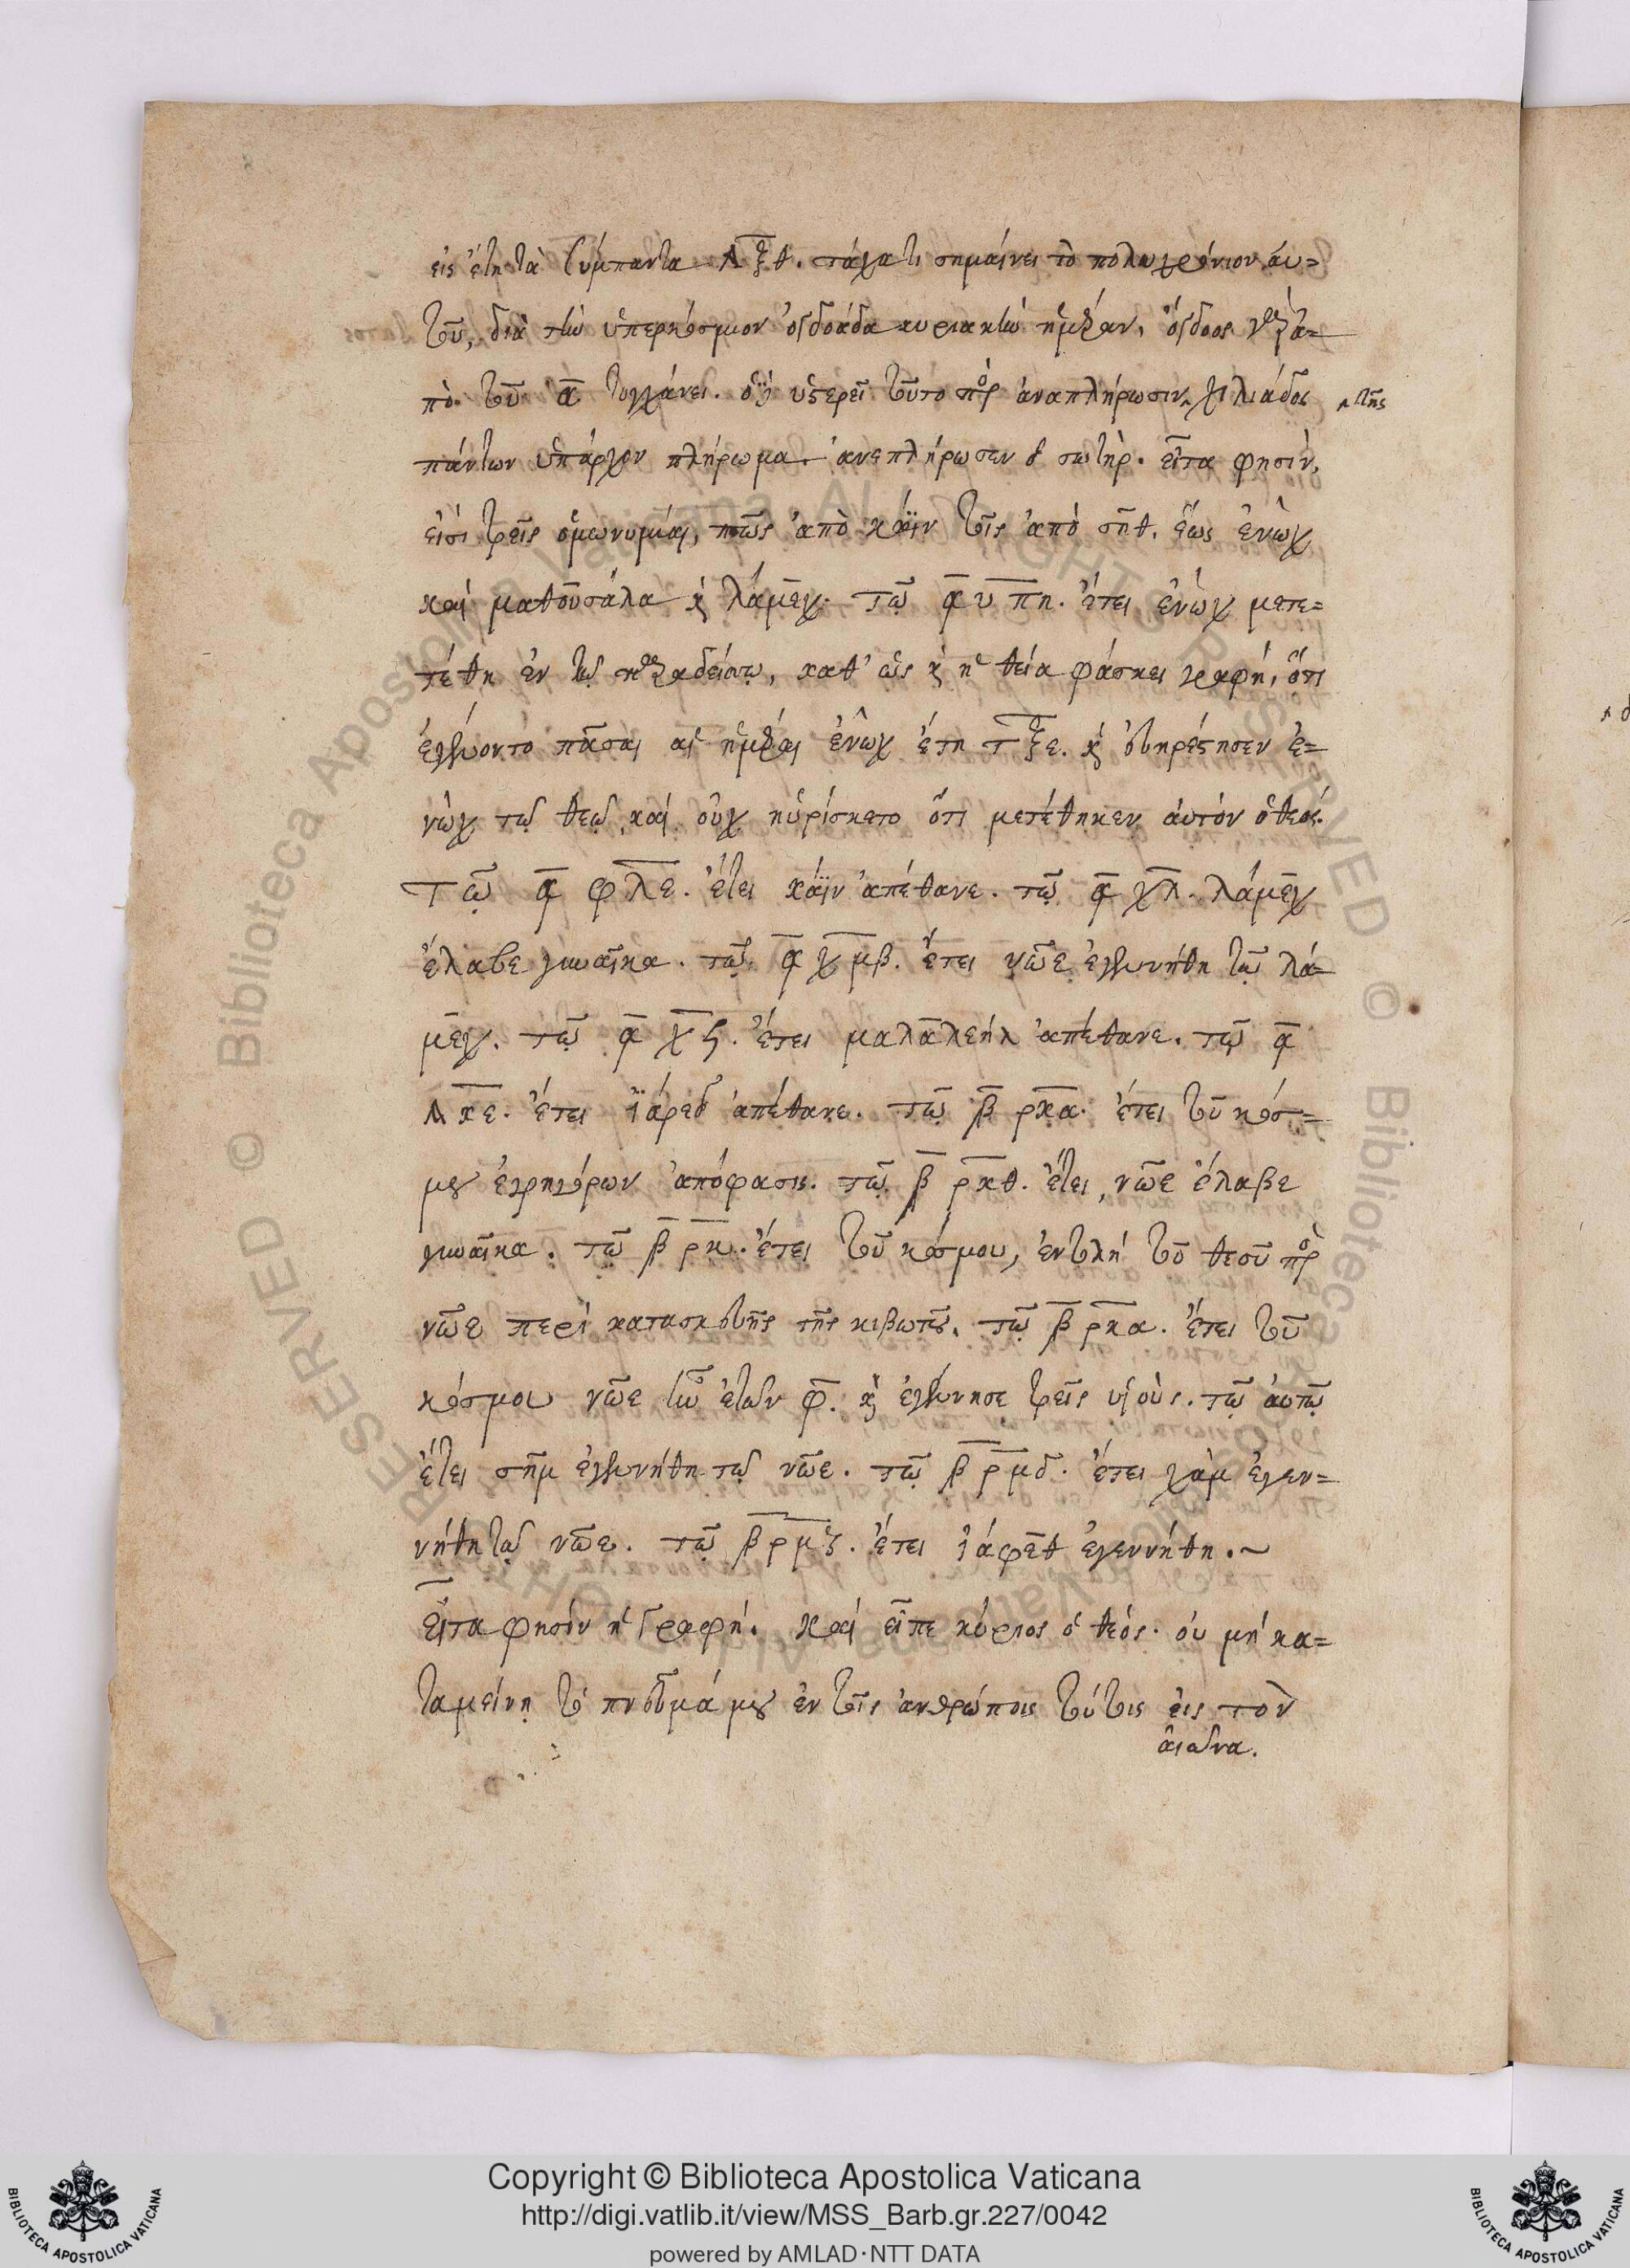 εἰς ἔτη τὰ σύμπαντα ϡξθ. τάχα τι σημαίνει τὸ πολυχρόνιον αὐ=
τοῦ, διὰ τὴν ὑπερκόσμιον ὀγδοάδα κυριακὴν ἡμέραν, ὄγδοος γὰρ ἀ=
πὸ τοῦ α τυγχάνει. οὗ ὑστερεῖ τοῦτο πρὸς ἀναπλήρωσιν ‸ χιλιάδος ‸ τῆς
πάντων ὑπάρχον πλήρωμα. ἀνεπλήρωσεν ὁ σωτήρ. εἶτα φησὶν,
εἰσὶ τρεῖς ὁμωνυμίαι, τοῖς ἀπὸ κάϊν τοῖς ἀπὸ σῆθ. ἕως ἐνὼχ
καὶ μαθουσάλα καὶ λάμεχ. τῷ ͵α υ πη. ἔτει ἐνὼχ μετε=
τέθη ἐν τῷ παραδείσῳ, καθ' ὡς καὶ ἡ θεία φάσκει γραφή, ὅτι
ἐγένοντο πᾶσαι αἱ ἡμέραι ἐνὼχ ἔτη τξε. καὶ εὐηρέστησεν ἐ=
νὼχ τῷ θεῷ, καὶ οὐχ ηὑρίσκετο ὅτι μετέθηκεν αὐτὸν ὁ θεός.
Τῷ ͵α φλε. ἔτει κάϊν ἀπέθανε. τῷ ͵α χλ. λάμεχ
ἔλαβε γυναῖκα. τῷ ͵α χμβ. ἔτει νῶε ἐγεννήθη τῷ λά=
μεχ. τῷ ͵α χϟ. ἔτει μαλαλεὴλ ἀπέθανε. τῷ ͵α
ϡκε. ἔτει ϊάρεδ ἀπέθανε. τῷ ͵β ρκα. ἔτει τοῦ κόσ=
μου ἐγρηγόρων ἀπόφασις. τῷ ͵β ρκθ. ἔτει, νῶε ἔλαβε
γυναῖκα. τῷ ͵β ρκ. ἔτει τοῦ κόσμου, ἐντολὴ τοῦ θεοῦ πρὸς
νῶε περὶ κατασκευῆς τῆς κιβωτοῦ. τῷ ͵β ρκα. ἔτει τοῦ
κόσμου νῶε ἦν ἐτῶν φ. καὶ ἐγέννησε τρεῖς υἱούς. τῷ αὐτῷ
ἔτει σῆμ ἐγεννήθη τῷ νῶε. τῷ ͵β ρμδ. ἔτει χὰμ ἐγεν=
νήθη τῷ νῶε. τῷ ͵β ρμζ. ἔτει ἰάφεθ ἐγεννήθη.~
Εἶτα φησὶν ἡ γραφή. Καὶ εἶπε κύριος ὁ θεός. οὐ μὴ κα=
ταμείνῃ τὸ πνεῦμά μου ἐν τοῖς ἀνθρώποις τούτοις εἰς τὸν
αἰῶνα.
Copyright © Biblioteca Apostolica Vaticana
http://digi.vatlib.it/view/MSS_Barb.gr.227/0042
powered by AMLAD·NTT DATA